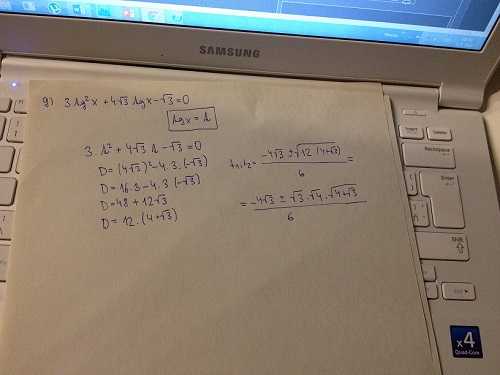 SAMSUNG
g) 3 lg²x + 4√3 lg x - √3 = 0
lg x = t
3.t² + 4√3 t - √3 = 0
D = (4√3)² - 4.3.(-√3)
D = 16.3 - 4.3 (-√3)
D = 48 + 12√3
D = 12.(4+√3)
t₁,t₂ = (-4√3 ± √(12.(4+√3)))/6 =
= (-4√3 ± √3.√4.√(4+√3))/6
Backspace
Enter
Shift
x4
Quad-Core